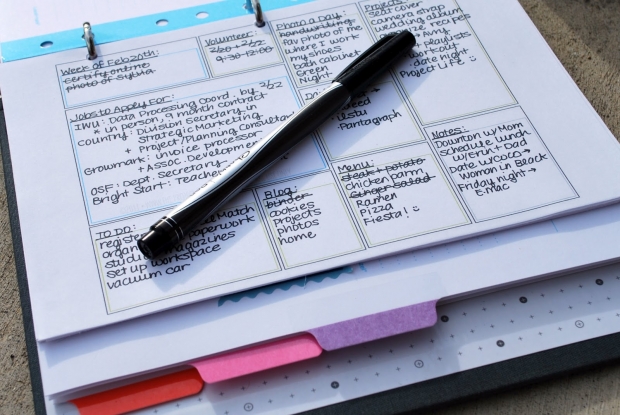 Week of Feb 20th:
certify online
photo of sylvia
Volunteer:
2/20 + 2/22
9:30-12:00
Photo a Day:
handwriting
fav photo of me
where I work
my shoes
bath cabinet
Green
Night
Projects:
seat cover
camera strap
wedding album
recipes
Amy
Playlists
workout
date night
Project Life :)
Jobs to Apply For:
IWU: Data Processing Coord., by 2/22
* in person, 9 month contract
Country: Division Secretary in
Strategic Marketing
+ Project/Planning Consultant
Growmark: invoice processor
+ Assoc. Development
OSF: Dept. Secretary
Bright Start: Teacher
Ilstu
· Pantagraph
Notes:
Downton w/ Mom
schedule lunch
w/ Erin + Dad
Date w/ CoCo →
Woman in Black
Friday night →
E.Mac
TO DO:
Match
paperwork
magazines
set up workspace
vacuum car
Blog:
binder
cookies
projects
photos
home
Menu:
steak + potato
chicken parm
Ginger Salad
Ramen
Pizza
Fiesta! :)